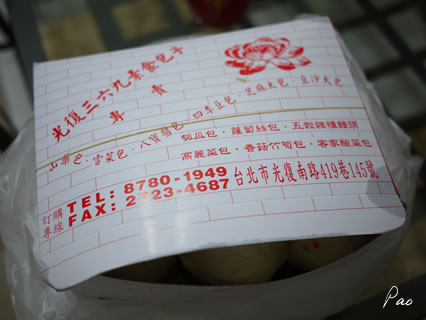 光復三六九素食包子
專賣
芝麻大包．豆沙大包
山東包．雪菜包．八寶菊包．四季豆包
瓠瓜包．蘿蔔絲包．五穀雜糧饅頭
高麗菜包．香菇竹筍包．客家酸菜包
訂購專線
TEL: 8780-1949
FAX: 2723-4687
台北市光復南路419巷145號
Pao